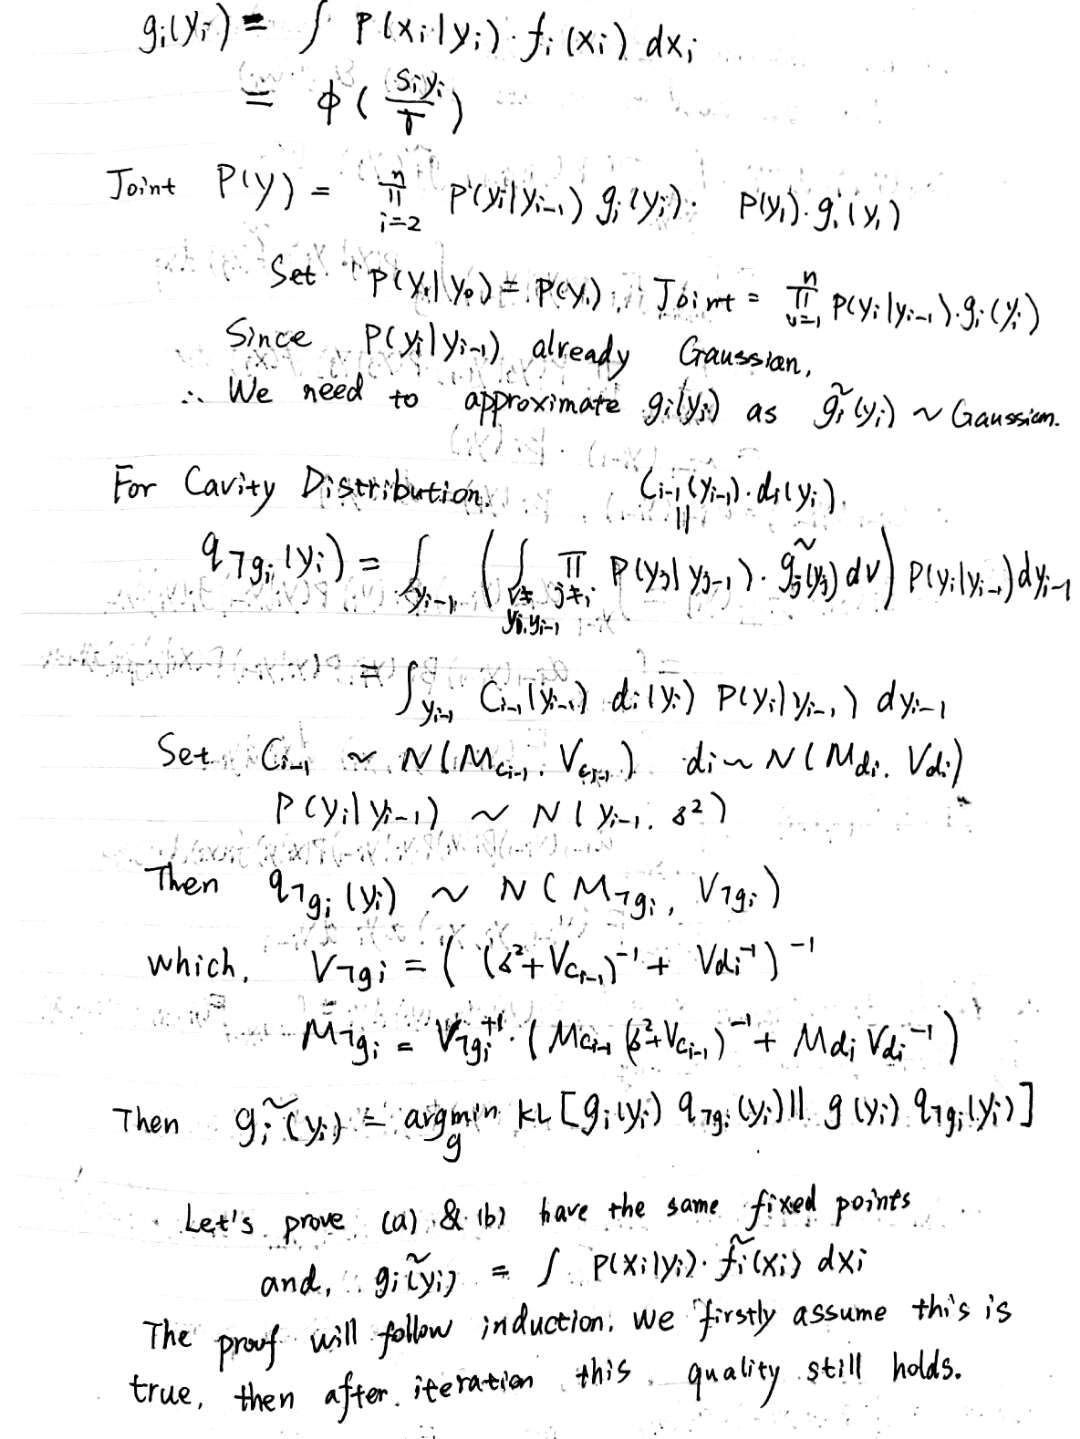 gᵢ(yᵢ) = ∫ P(xᵢ|yᵢ)·fᵢ(xᵢ) dxᵢ
= ϕ(Sᵢyᵢ/T)
Joint P(y) = ∏ⁿᵢ₌₂ P(yᵢ|yᵢ₋₁) gᵢ(yᵢ)· P(y₁)·g₁(y₁)
Set P(y₁|y₀) = P(y₁), Joint = ∏ⁿᵢ₌₁ P(yᵢ|yᵢ₋₁)·gᵢ(yᵢ)
Since P(yᵢ|yᵢ₋₁) already Gaussian,
∴ We need to approximate gᵢ(yᵢ) as g̃ᵢ(yᵢ) ~ Gaussian.
For Cavity Distribution.
Cᵢ₋₁(yᵢ₋₁)·dᵢ(yᵢ).
||
q¬gᵢ(yᵢ) = ∫_{yᵢ₋₁} ( ∫_{v≠yᵢ,yᵢ₋₁} ∏_{j≠i} P(yⱼ|yⱼ₋₁)·g̃ⱼ(yⱼ) dv ) P(yᵢ|yᵢ₋₁) dyᵢ₋₁
= ∫_{yᵢ₋₁} Cᵢ₋₁(yᵢ₋₁) dᵢ(yᵢ) P(yᵢ|yᵢ₋₁) dyᵢ₋₁
Set Cᵢ₋₁ ~ N(M_{cᵢ₋₁}, V_{cᵢ₋₁}) dᵢ ~ N(M_{dᵢ}, V_{dᵢ})
P(yᵢ|yᵢ₋₁) ~ N(yᵢ₋₁, s²)
Then q¬gᵢ(yᵢ) ~ N(M¬gᵢ, V¬gᵢ)
which, V¬gᵢ = ((s²+V_{cᵢ₋₁})⁻¹ + V_{dᵢ}⁻¹)⁻¹
M¬gᵢ = V¬gᵢ⁺¹·(M_{cᵢ₋₁}(s²+V_{cᵢ₋₁})⁻¹ + M_{dᵢ} V_{dᵢ}⁻¹)
Then g̃ᵢ(yᵢ) = argmin_g KL[gᵢ(yᵢ) q¬gᵢ(yᵢ)|| g(yᵢ) q¬gᵢ(yᵢ)]
Let's prove (a) & (b) have the same fixed points
and, g̃ᵢ(yᵢ) = ∫ P(xᵢ|yᵢ)·f̃ᵢ(xᵢ) dxᵢ
The proof will follow induction. we firstly assume this is
true, then after iteration this quality still holds.